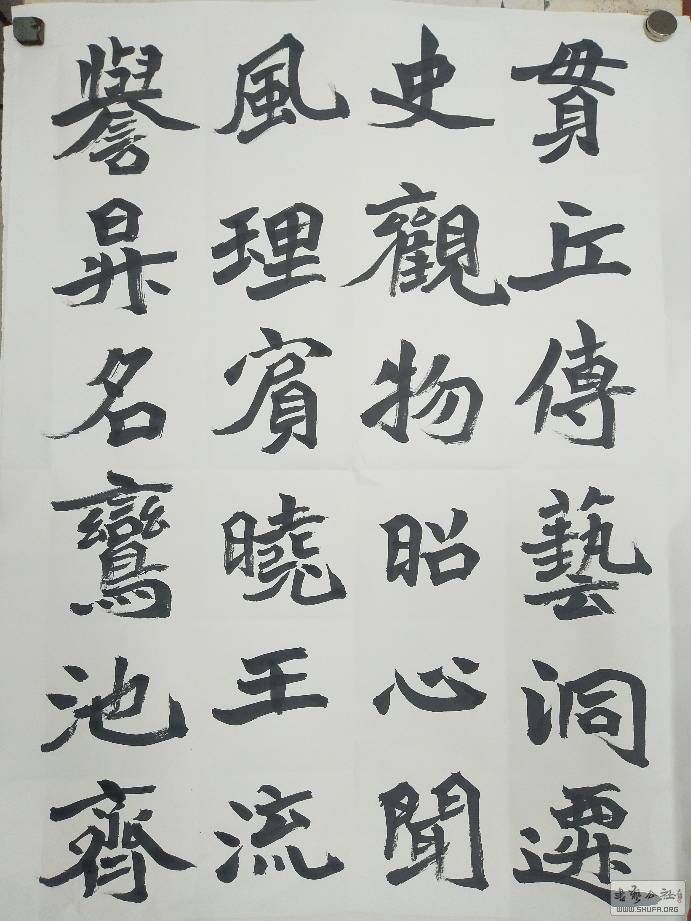 貫丘傳藝洞遷
史觀物昭心聞
風理賓曉王流
譽昇名鸞池齊
书艺公社
WWW.SHUFA.ORG